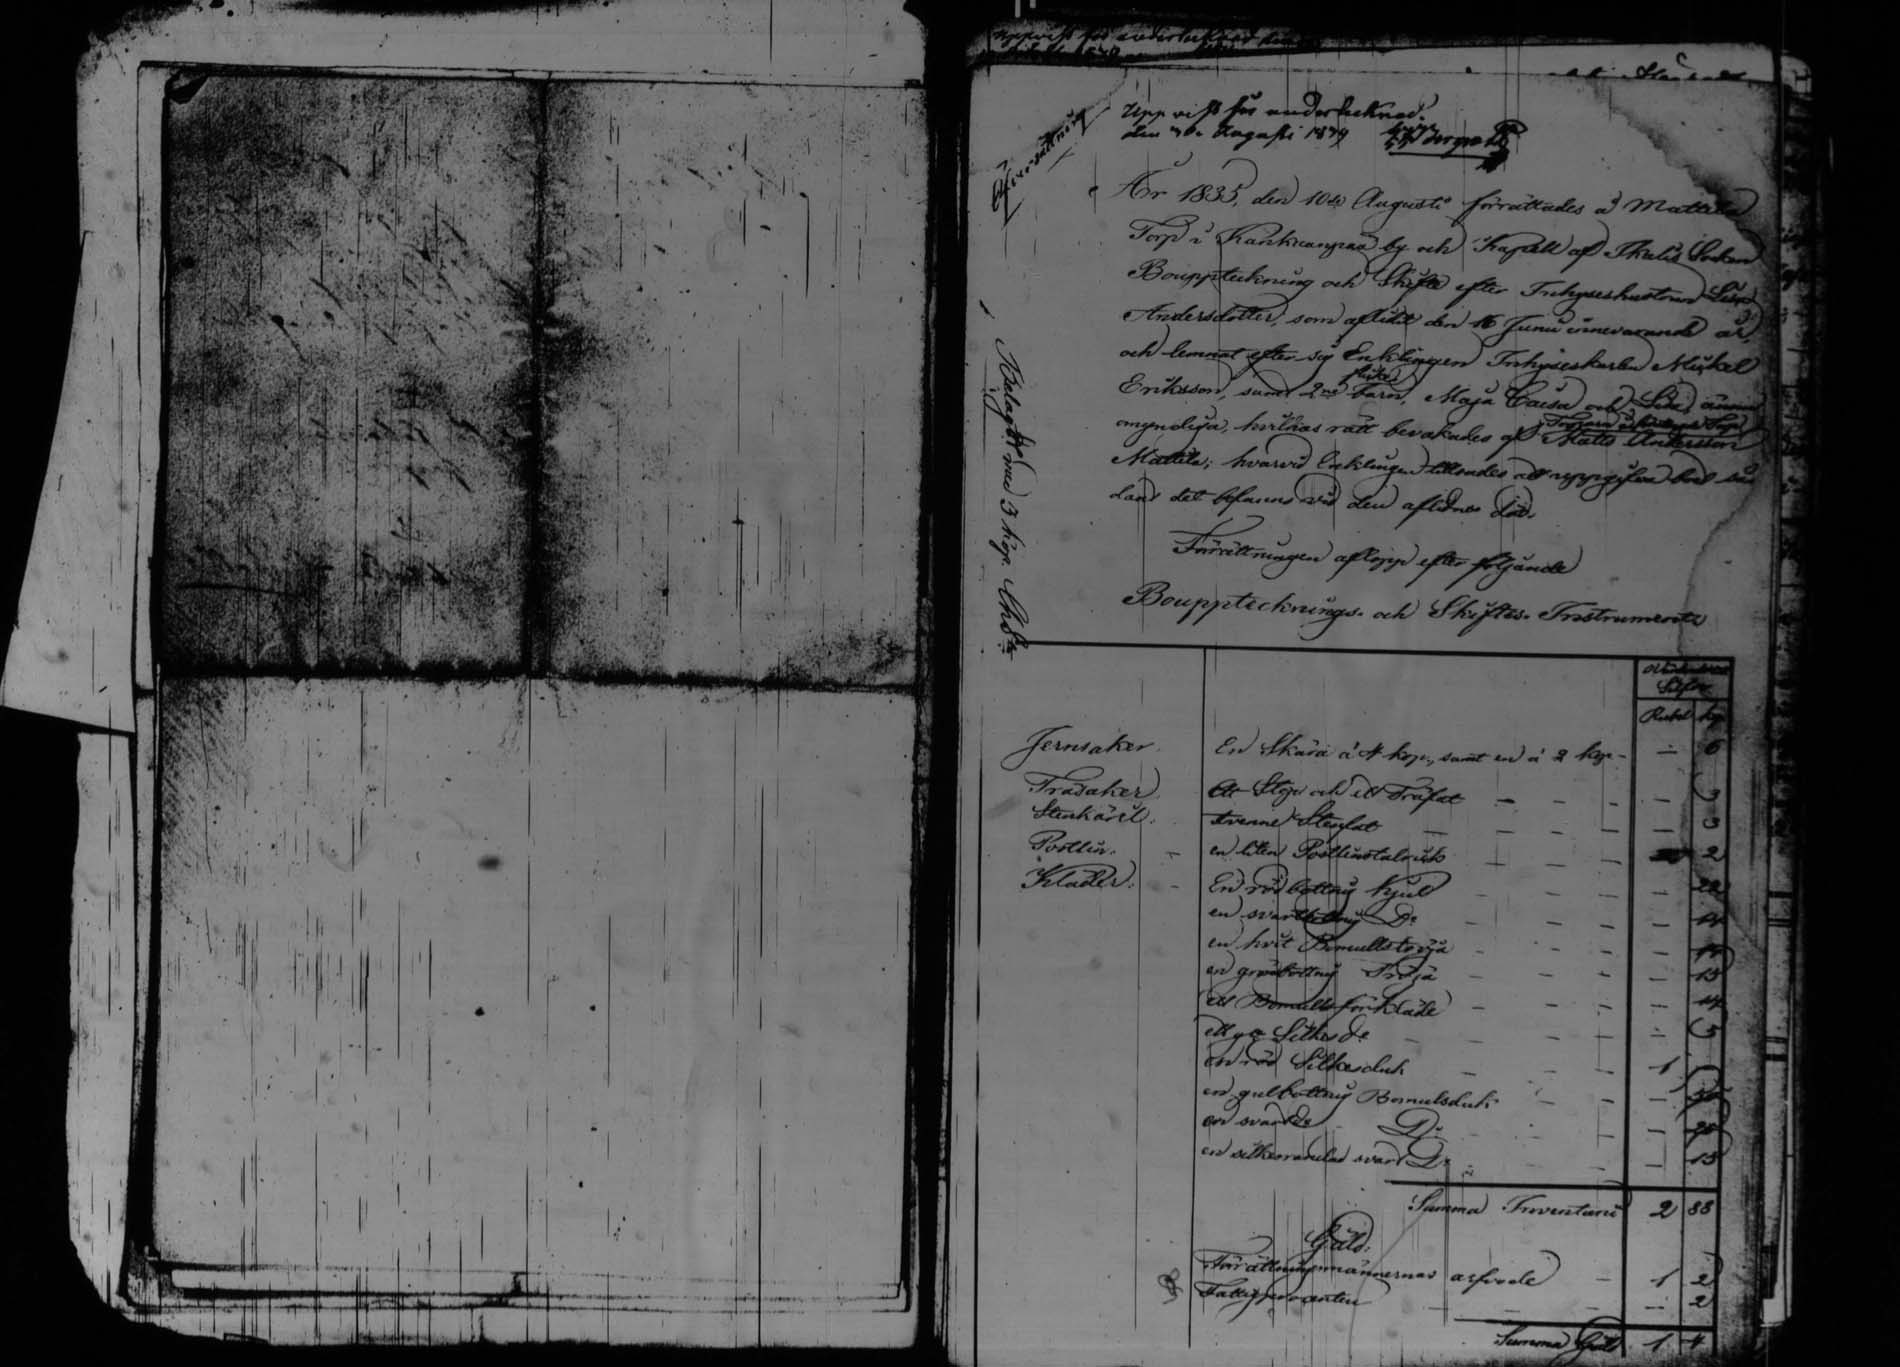 Uppvist för undertecknad
den Augusti 1879
Öfversättning
År 1835, den 10de Augusti förrättades å Mattila
Torp i Kankaanpää by och Kapell af Ikalis Socken
Bouppteckning och Skifte efter Inhyseshustrun Lisa
Andersdotter, som aflidit den 16 Junii innevarande år,
och lemnat efter sig Enklingen Inhyseskarlen Mickel
Eriksson, samt 2ne barn, Maja Caisa och Lisa, ännu
omyndiga, hvilkas rätt bevakades af Matts Andersson
Mattila; hvarvid Enklingen tillsades att uppgifva boet så
dant det befanns vid den aflidnes död.
Förrättningen aflopp efter följande
Boupptecknings- och Skiftes- Instrument
Belagdt med 3 kop. Chta
Silfver
Rubel kop
Jernsaker. En Skära à 4 kop., samt en à 2 kop - — 6
Träsaker. Ett Stop och ett Träfat — 3
Stenkäril. tvenne Stenfat — 3
Postlin. en liten Postlinstalrick 2
Kläder. En rödbottnig kjol — 22
en svartbottnig Do
en hvit Bomullströja
en gråbottnig Tröja — 15
ett Bomulls förkläde — 14
ett Silkes do — 5
en röd Silkesduk 1
en gulbottnig Bomulsduk — 50
en svart Do
en silkesrandad svart Do — 15
Summa Inventarii 2 88
Gäld.
Förrättningsmännernas arfvode 1 2
Fattigprocenten — 2
Summa Gäld 1 4